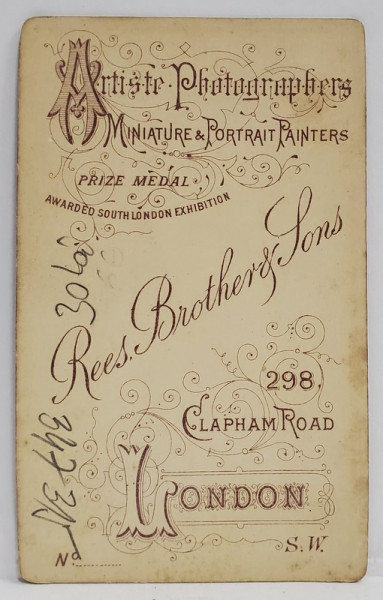 Artiste Photographers
MINIATURE & PORTRAIT PAINTERS
PRIZE MEDAL
AWARDED SOUTH LONDON EXHIBITION
Rees. Brother & Sons
298,
CLAPHAM ROAD
LONDON
S.W.
No